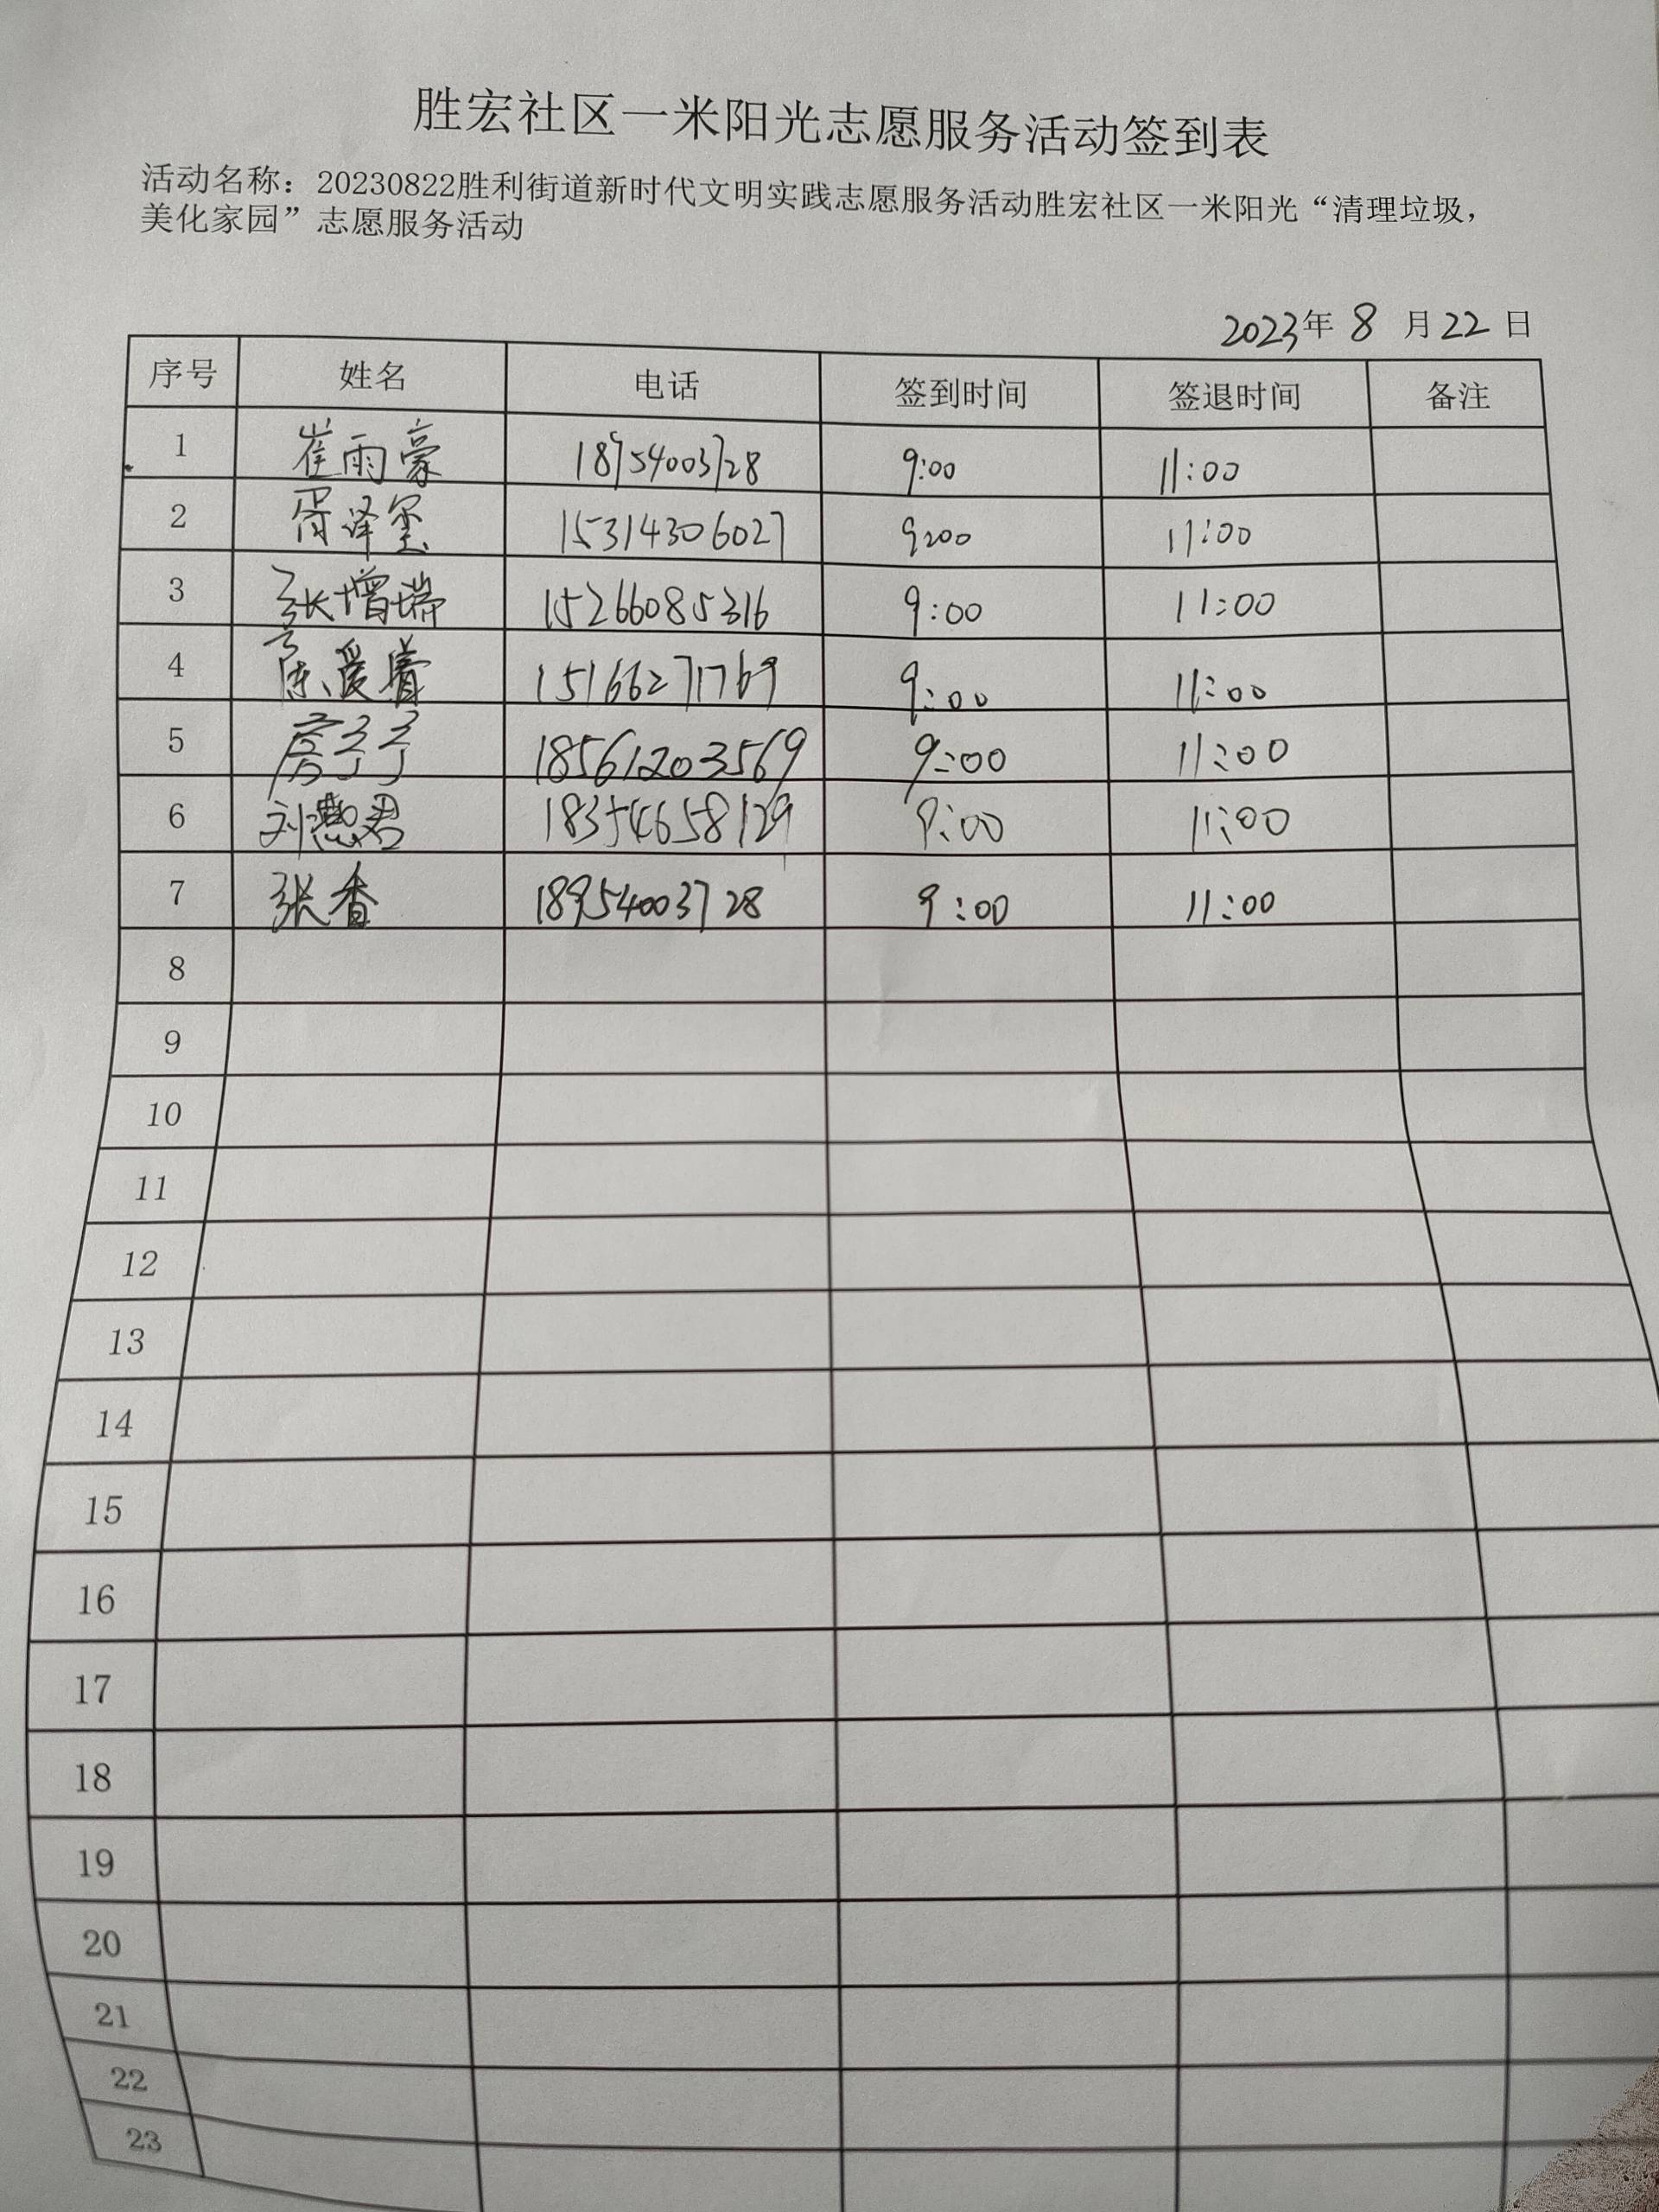 胜宏社区一米阳光志愿服务活动签到表
活动名称：20230822胜利街道新时代文明实践志愿服务活动胜宏社区一米阳光“清理垃圾，
美化家园”志愿服务活动
2023年 8 月 22 日
序号 姓名 电话 签到时间 签退时间 备注
1 崔雨豪 18954003728 9:00 11:00
2 胥泽玺 15314306027 9:00 11:00
3 张增瑞 15266085316 9:00 11:00
4 15166271769 9:00 11:00
5 18561203569 9:00 11:00
6 刘慧君 18354658129 9:00 11:00
7 张香 18954003728 9:00 11:00
8
9
10
11
12
13
14
15
16
17
18
19
20
21
22
23